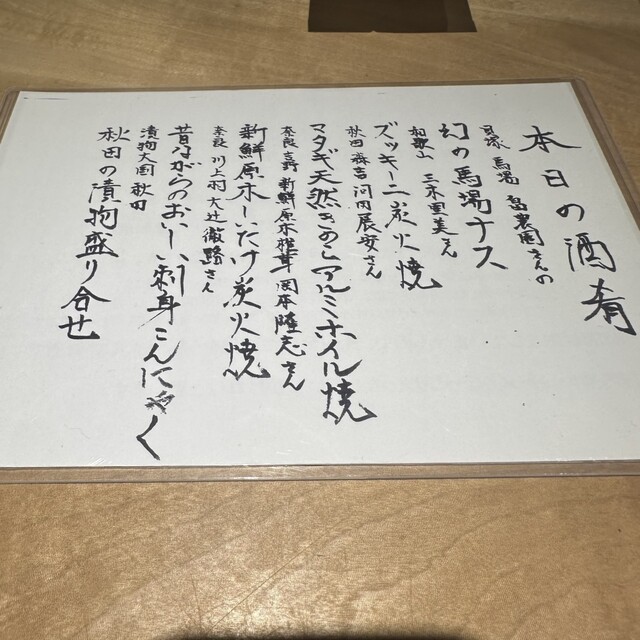 本日の酒肴
貝塚 馬場 農園さんの
幻の馬場ナス
和歌山 三木里美さん
ズッキーニ炭火焼
秋田 森吉 河内辰安さん
マタギ天然きのこアルミホイル焼
奈良 吉野 新鮮原木椎茸 岡本隆志さん
新鮮原木しいたけ炭火焼
奈良 川上村 大辻 さん
昔ながらのおいしい刺身こんにゃく
漬物大国 秋田
秋田の漬物盛り合せ